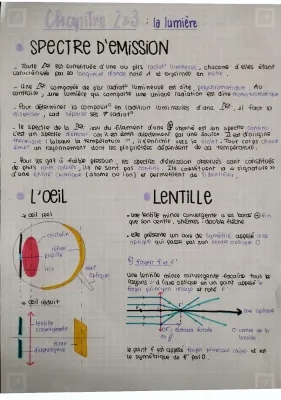 Chapitre 2&3 : la lumière
SPECTRE D'EMISSION
Toute est constituée d'une ou plrs radiat° lumineuse, chacune d'elles étant
caractérisée par sa longueur d'onde noté λ et exprimée en mètre.
Une composée de plrs radiat° lumineuse est dite polychromatique. Au
contraire, une lumière qui comporte une unique radiation est dite monochromatique
Pour déterminer la composit° en radiation lumineuses d'une, il faut la
disperser, cad séparer ses ≠ radiat°
Le spectre de la issu du filament d'une est son spectre continu
c'est un spectre d'émiss° car il est émis directement par une source. Il est d'origine
thermique : lorsque la température ↗, il s'enrichit vers le violet. Tout corps chaud
émet un rayonnement dont les propriétés dépendent de sa température.
Pour les gaz à faible pression, les spectres d'émission observés sont constitués
de plrs raies colorés, ils ne sont pas continu. Ils constituent la "signature"
d'une entité chimique (atome ou ion) et permettent de l'identifier.
L'ŒIL
œil réel
cristallin
rétine
pupille
iris
nerf
optique
œil réduit
lentille
convergente
écran
diaphragme
LENTILLE
une lentille mince convergente a les bords ⊕ fin
que son centre, shémas - double flèche
elle présente un axe de symétrie appelé axe
optique qui passe par son centre optique O
foyer F et F'
Une lentille mince convergente focalise tous les
rayons // à l'axe optique en un point appelé
foyer principal image et noté F'
axe optique
OF' = distance focale
O = centre de la
lentille
le point F est appelé foyer principal objet et est
le symétrique de F' par O.